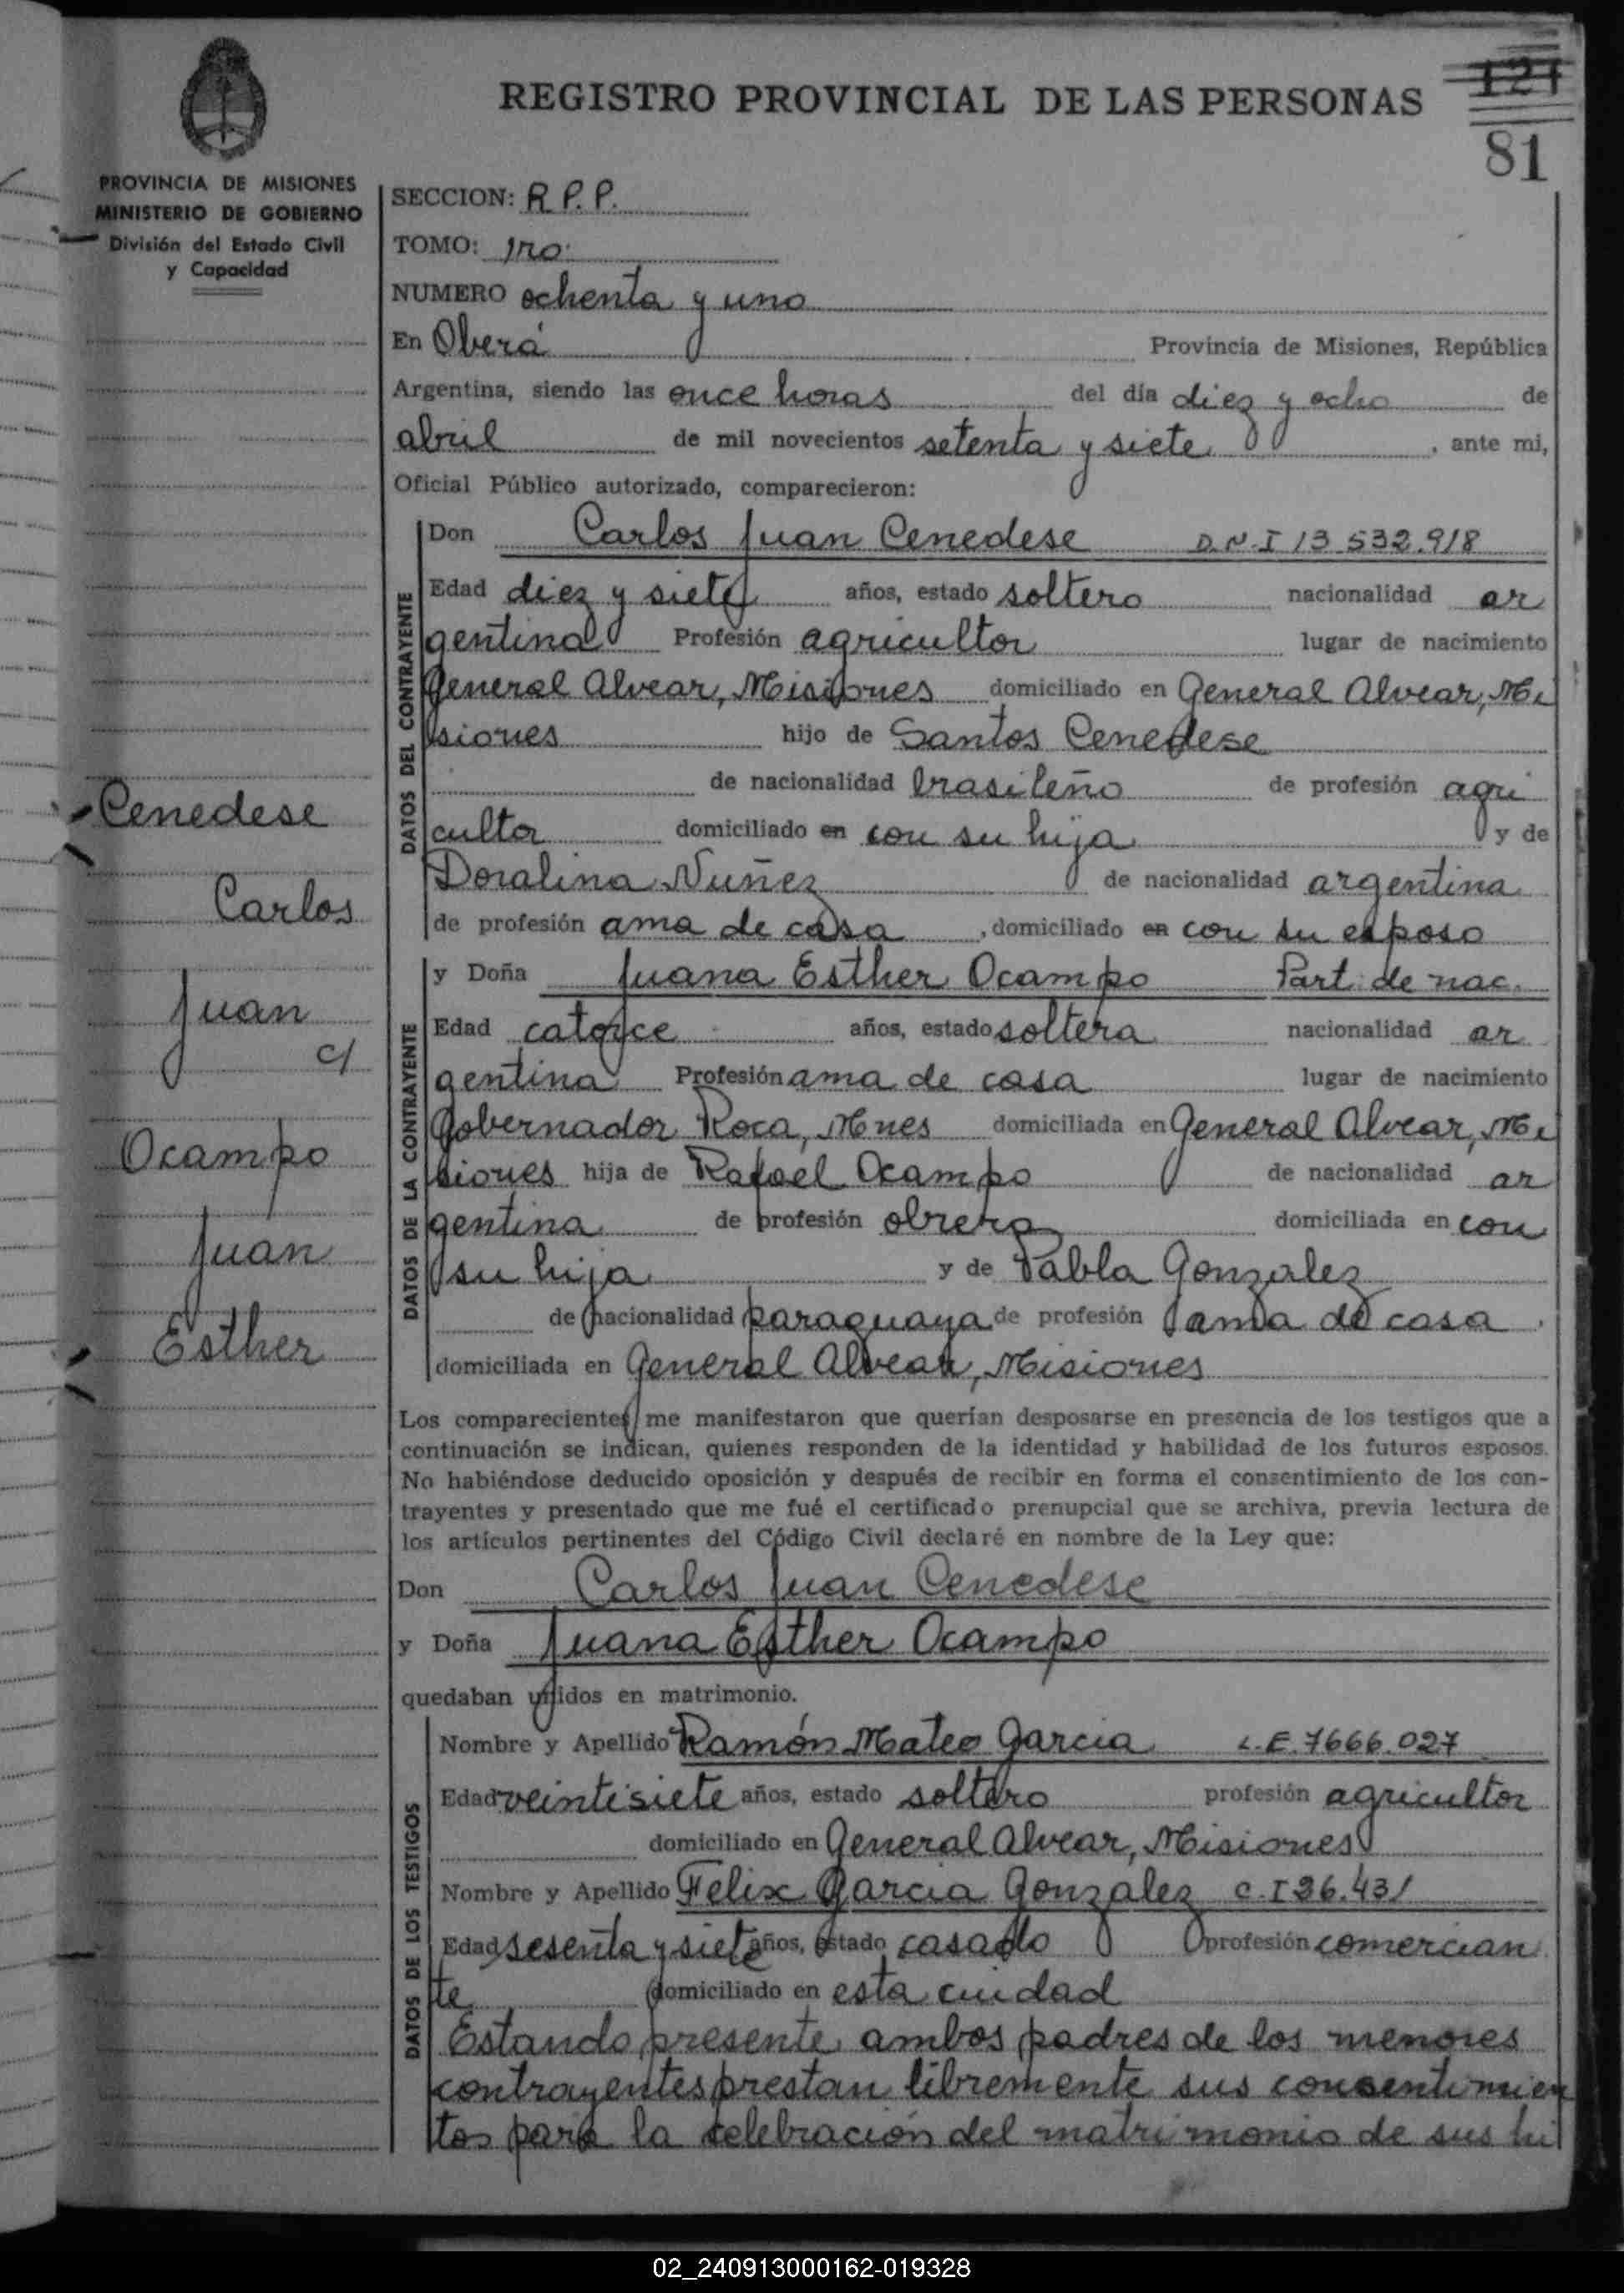 REGISTRO PROVINCIAL DE LAS PERSONAS
121
81
PROVINCIA DE MISIONES
MINISTERIO DE GOBIERNO
División del Estado Civil
y Capacidad
SECCION: R.P.P.
TOMO: 1ro.
NUMERO ochenta y uno
En Oberá Provincia de Misiones, República
Argentina, siendo las once horas del día diez y ocho de
abril de mil novecientos setenta y siete, ante mi,
Oficial Público autorizado, comparecieron:
DATOS DEL CONTRAYENTE
Don Carlos Juan Cenedese D.N.I 13.532.918
Edad diez y siete años, estado soltero nacionalidad ar
gentina Profesión agricultor lugar de nacimiento
General Alvear, Misiones domiciliado en General Alvear, Mi
siones hijo de Santos Cenedese
de nacionalidad brasileño de profesión agri
cultor domiciliado en con su hija y de
Doralina Nuñez de nacionalidad argentina
de profesión ama de casa, domiciliado en con su esposo
DATOS DE LA CONTRAYENTE
y Doña Juana Esther Ocampo Part. de nac.
Edad catorce años, estado soltera nacionalidad ar
gentina Profesión ama de casa lugar de nacimiento
Gobernador Roca, Mnes domiciliada en General Alvear, Mi
siones hija de Rafael Ocampo de nacionalidad ar
gentina de profesión obrero domiciliada en con
su hija y de Pabla Gonzalez
de nacionalidad paraguaya de profesión ama de casa.
domiciliada en General Alvear, Misiones
Los comparecientes me manifestaron que querían desposarse en presencia de los testigos que a
continuación se indican, quienes responden de la identidad y habilidad de los futuros esposos.
No habiéndose deducido oposición y después de recibir en forma el consentimiento de los con-
trayentes y presentado que me fué el certificado prenupcial que se archiva, previa lectura de
los artículos pertinentes del Código Civil declaré en nombre de la Ley que:
Don Carlos Juan Cenedese
y Doña Juana Esther Ocampo
quedaban unidos en matrimonio.
DATOS DE LOS TESTIGOS
Nombre y Apellido Ramón Mateo Garcia L.E. 7666.027
Edad veintisiete años, estado soltero profesión agricultor
domiciliado en General Alvear, Misiones
Nombre y Apellido Felix Garcia Gonzalez C.I 36.431
Edad sesenta y siete años, estado casado profesión comercian
te domiciliado en esta ciudad
Estando presente ambos padres de los menores
contrayentes prestan libremente sus consentimien
tos para la celebración del matrimonio de sus hi
Cenedese
Carlos
Juan
c/
Ocampo
Juan
Esther
02_240913000162-019328